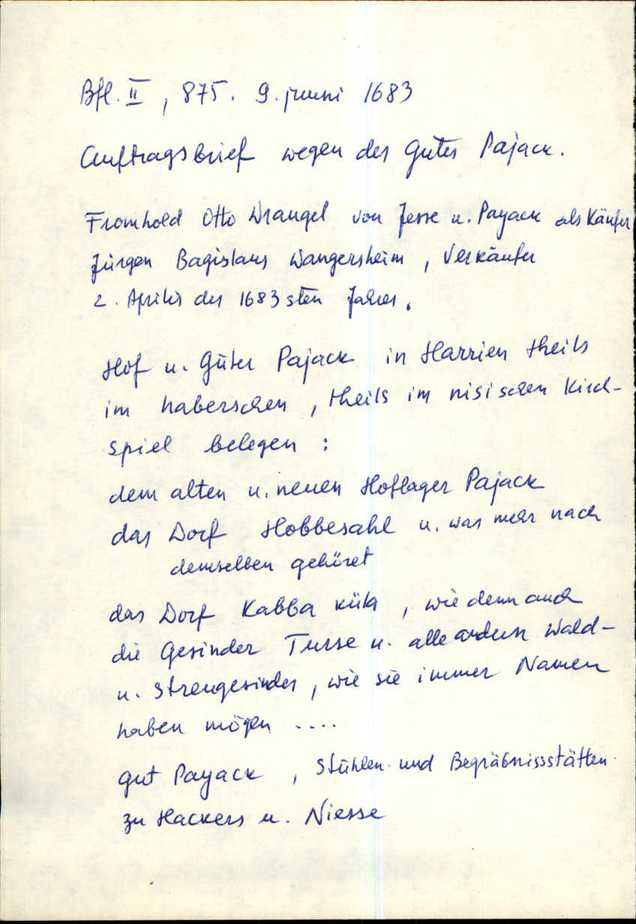 Bfl. II, 875. 9. juuni 1683
Auftragsbrief wegen des Gutes Pajack.
Fromhold Otto Wrangel von Jesse u. Payack als Käufer
Jürgen Bagislaus Wangersheim, Verkäufer
2. Aprilis des 1683 sten Jahres.
Hof u. Güter Pajack in Harrien theils
im haberschen, theils im nisischen Kirch-
spiel belegen:
dem alten u. neuen Hoflager Pajack
das Dorf Hobbesahl u. was mehr nach
demselben gehöret
das Dorf Kabba küla, wie denn auch
die Gesinder Tursse u. alle andern Wald-
u. Streugesinder, wie sie immer Namen
haben mögen ....
gut Payack, Stühlen und Begräbnissstätten
zu Hackers u. Niesse